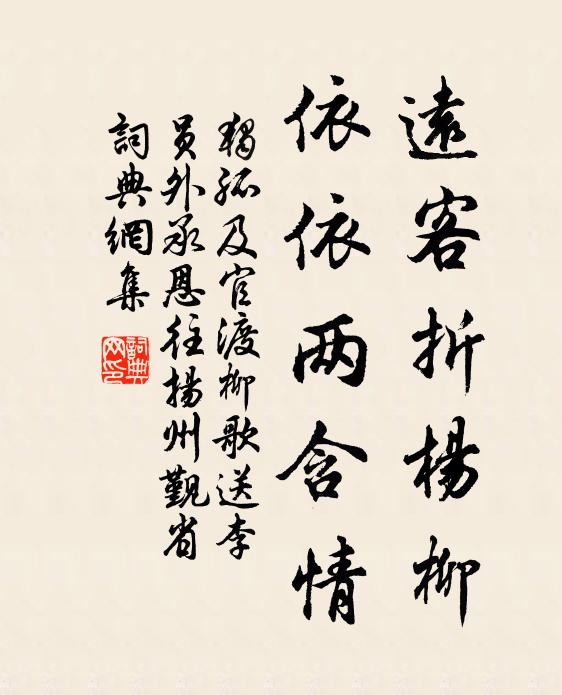 遠客折楊柳
依依两含情
獨孤及官渡柳歌送李
員外承恩往揚州覲省
詞典網集
詞典
网印